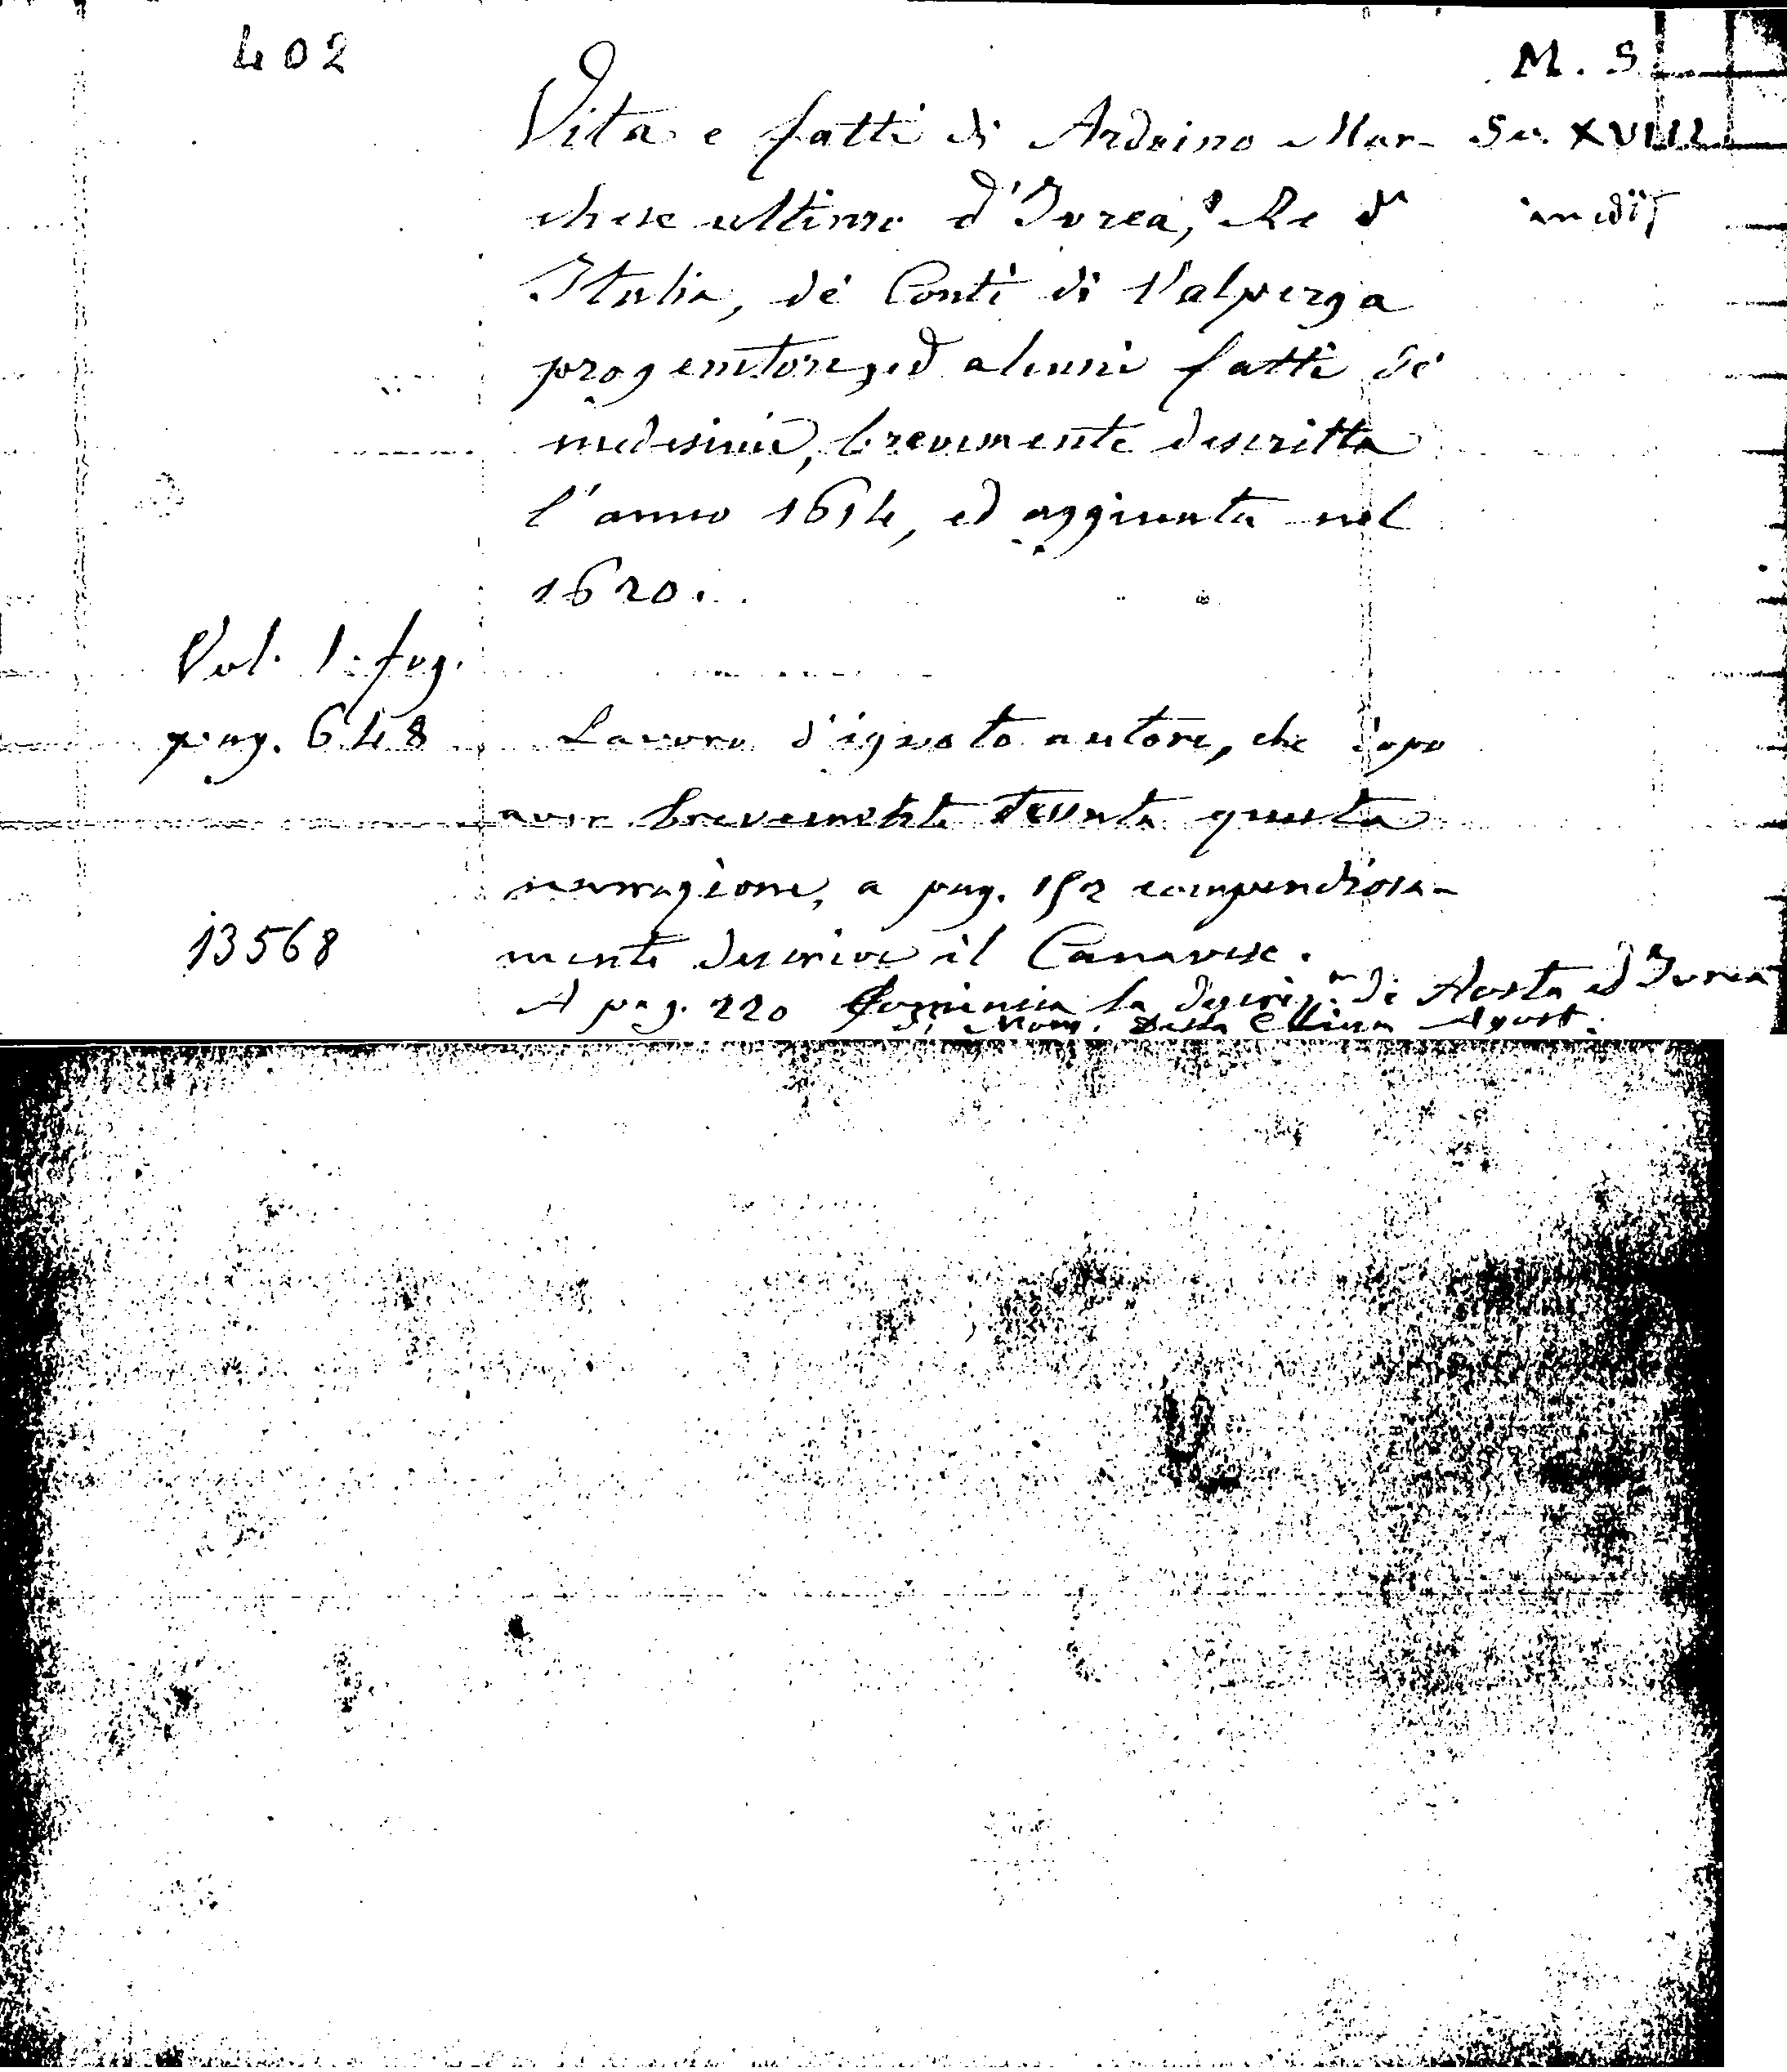 402
M. S.
Vita e fatti di Ardoino Mar-
Sec. XVIII
chese ultimo d'Ivrea, Re d'
inedit
Italia, de' Conti di Valperga
progenitore, ed alcuni fatti de'
medesimi, brevemente descritta
l'anno 1614, ed aggiunta nel
1620.
Vol. 1. fog.
pag. 648
Lavoro d'ignoto autore, che dopo
aver brevemente questa
narrazione, a pag. 152 compendiosa-
13568
mente descrive il Canavese.
A pag. 220 Comincia la descriz.ne di Aosta ed Ivrea
di Mons. Della Chiesa Agost.